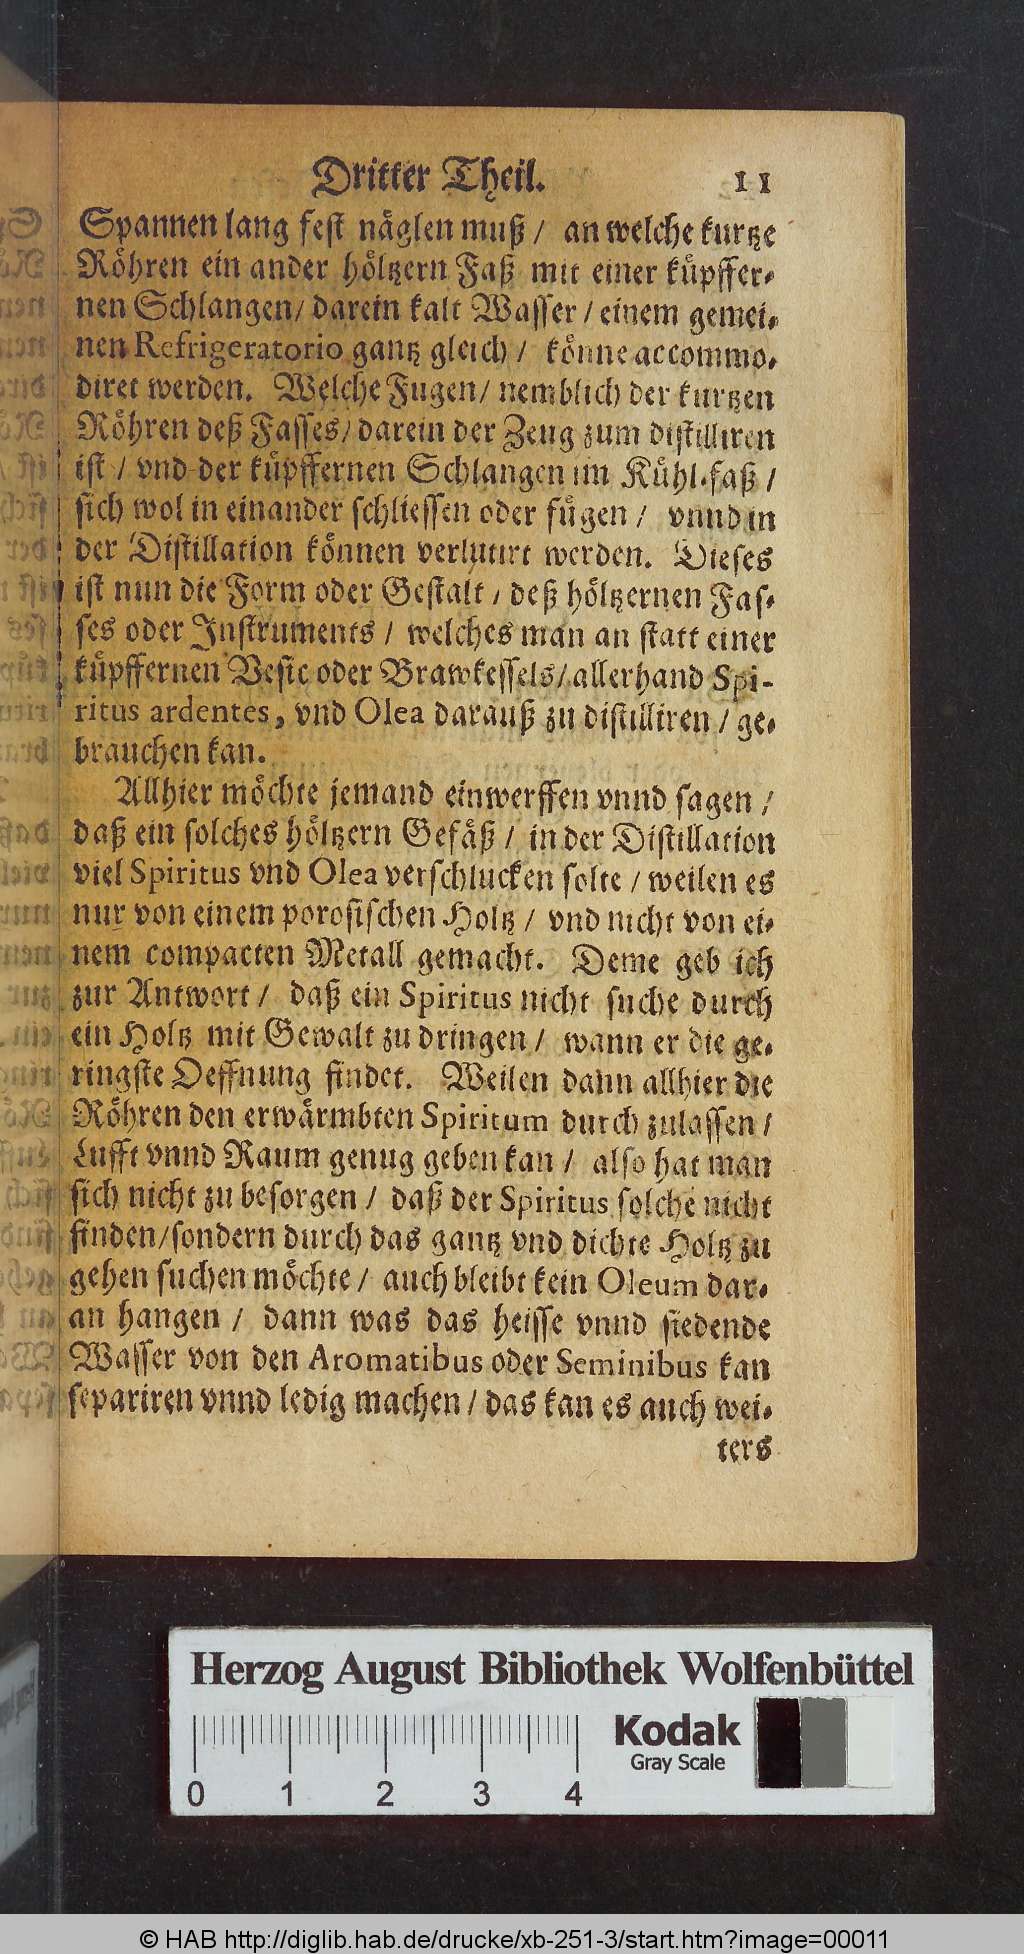 Dritter Theil. 11
Spannen lang fest näglen muß / an welche kurtze
Röhren ein ander höltzern Faß mit einer küpffer-
nen Schlangen / darein kalt Wasser / einem gemei-
nen Refrigeratorio gantz gleich / könne accommo-
diret werden. Welche Fugen / nemblich der kurtzen
Röhren deß Fasses / darein der Zeug zum distilliren
ist / vnd der küpffernen Schlangen im Kühl-faß /
sich wol in einander schliessen oder fügen / vnnd in
der Distillation können verlutirt werden. Dieses
ist nun die Form oder Gestalt / deß höltzernen Fas-
ses oder Instruments / welches man an statt einer
küpffernen Vesic oder Brawkessels / allerhand Spi-
ritus ardentes, vnd Olea darauß zu distilliren / ge-
brauchen kan.
Allhier möchte jemand einwerffen vnnd sagen /
daß ein solches höltzern Gefäß / in der Distillation
viel Spiritus vnd Olea verschlucken solte / weilen es
nur von einem porosischen Holtz / vnd nicht von ei-
nem compacten Metall gemacht. Deme geb ich
zur Antwort / daß ein Spiritus nicht suche durch
ein Holtz mit Gewalt zu dringen / wann er die ge-
ringste Oeffnung findet. Weilen dann allhier die
Röhren den erwärmbten Spiritum durch zulassen /
Lufft vnnd Raum genug geben kan / also hat man
sich nicht zu besorgen / daß der Spiritus solche nicht
finden / sondern durch das gantz vnd dichte Holtz zu
gehen suchen möchte / auch bleibt kein Oleum dar-
an hangen / dann was das heisse vnnd siedende
Wasser von den Aromatibus oder Seminibus kan
separiren vnnd ledig machen / das kan es auch wei-
ters
Herzog August Bibliothek Wolfenbüttel
Kodak
Gray Scale
0 1 2 3 4
© HAB http://diglib.hab.de/drucke/xb-251-3/start.htm?image=00011